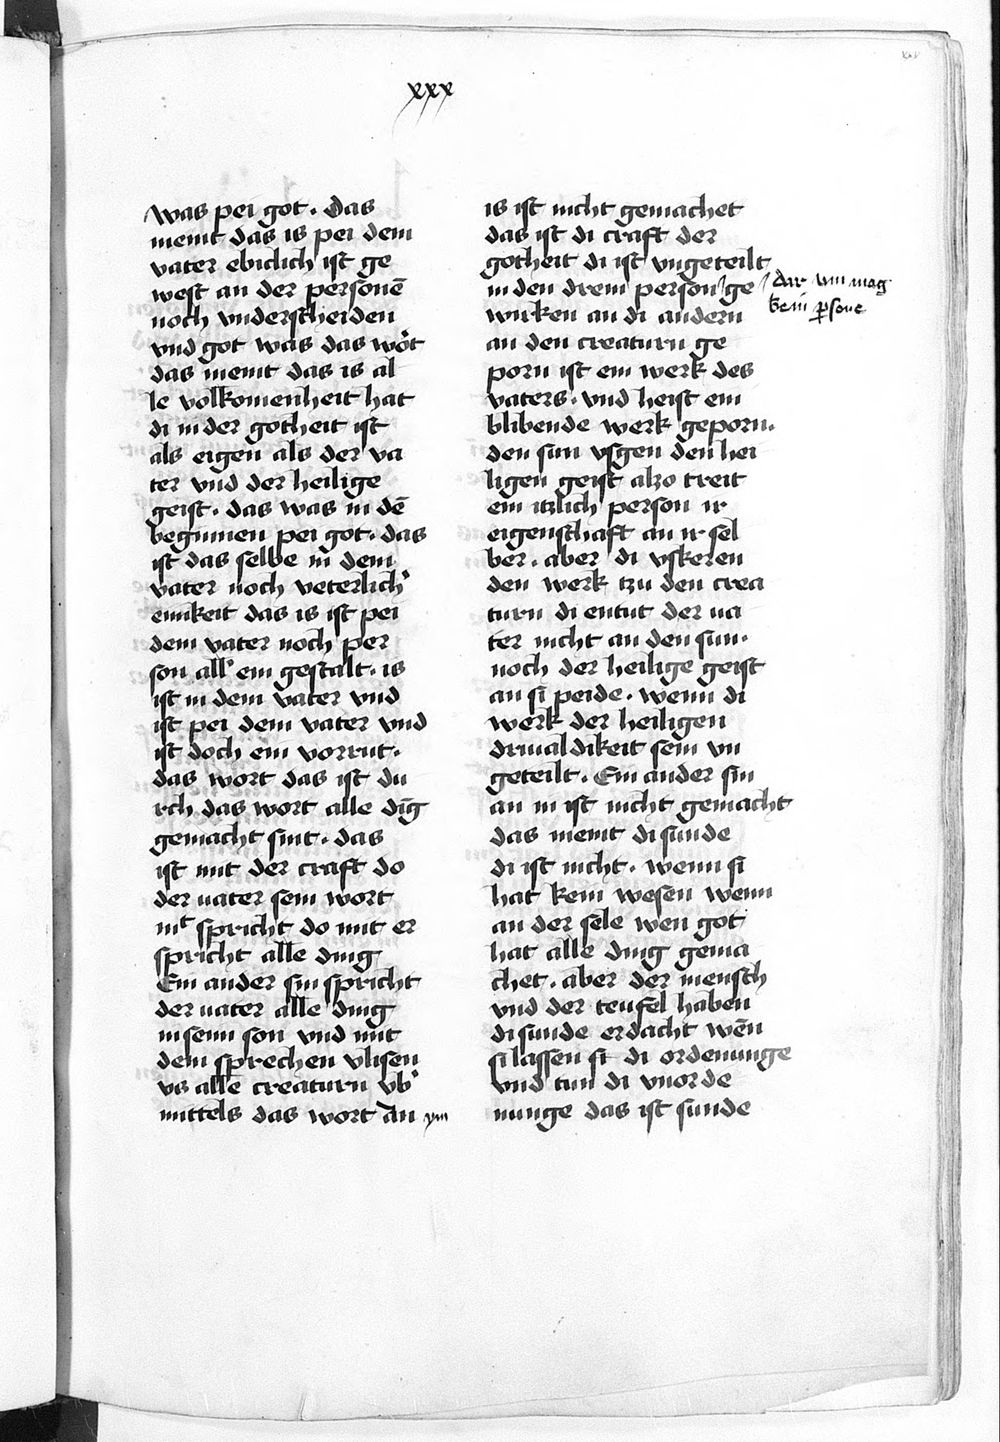 xxx
was pei got. Das
meint das is pei dem
vater ebiclich ist ge
west an der personē
noch vnderscheiden
vnd got was das wort
das meint das is al
le volkomenheit hat
di in der gotheit ist
als eigen als der va
ter vnd der heilige
geist. das was in dē
beginnen pei got. das
ist das selbe in dem
vater noch veterlich'
einikeit das is ist pei
dem vater noch per
son all' ein gestalt. is
ist in dem vater vnd
ist pei dem vater vnd
ist doch ein
das wort das ist du
rch das wort alle dīg
gemacht sint. das
ist mit der craft do
der uater sein wort
mit spricht do mit er
spricht alle ding
Ein ander sin spricht
der uater alle ding
in seim son vnd mit
dem sprechen vlisen
vs alle creaturn vb'
mittels das wort an ym
is ist nicht gemachet
das ist di craft der
gotheit di ist vngeteilt
in den drein person ge
wirken an di andern
an den creaturn ge
porn ist ein werk des
vaters. vnd heist ein
blibende werk geporn.
den sun vsgen den hei
ligen geist alzo treit
ein itzlich person ir
eigenschaft an ir sel
ber. aber di vskeren
den werk tzu den crea
turn di entut der ua
ter nicht an den sun.
noch der heilige geist
an si peide. wenn di
werk der heiligen
driualdikeit sein vn
geteilt. Ein ander sin
an in ist nicht gemacht
das meint di sunde
di ist nicht. wenn si
hat kein wesen wenn
an der sele wen got
hat alle ding gema
chet. aber der mensch
vnd der teufel haben
di sunde erdacht wēn
si lassen si di ordenunge
vnd tun di vnorde
nunge das ist sunde
dar vm mag
kein psone